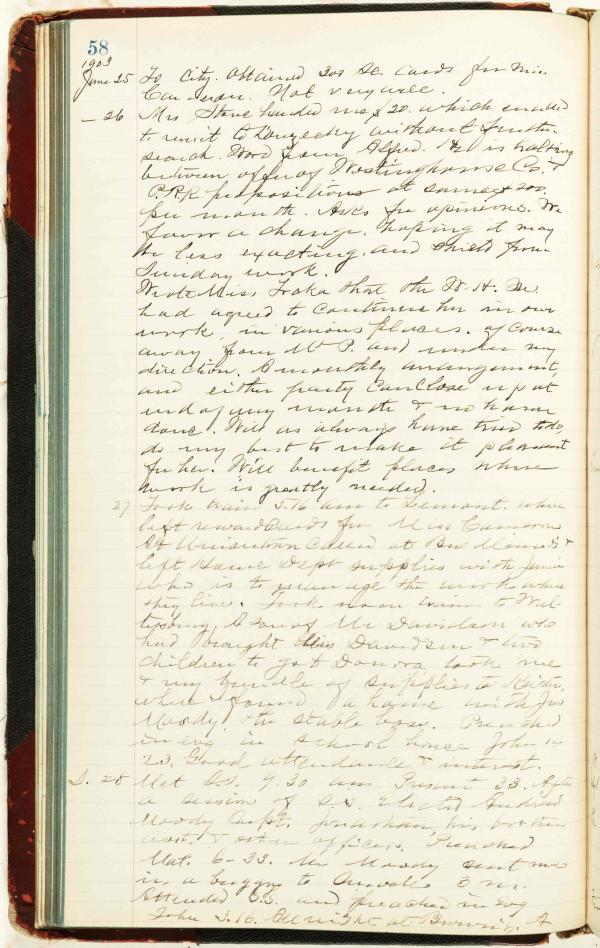 58
1903
June 25 To City. Obtained 300 Se. cards for Miss
Cameron. Not very well.
— 26 Mrs Stone handed me $20. which enabled
to remit to without further
search. Word from Alfred. He is halting
between offer of Westinghouse Co. &
P.R.R. propositions at same $200.
per month. Asks for opinions. We
favor a change. hoping it may
be less exacting. and shield from
Sunday work.
Wrote Miss Troka that the W. H. M.
had agreed to continue her in our
work, in various places. of course
away from Mt P. and under my
direction. A monthly arrangement,
and either party can close up at
end of any month & no harm
done. Will as always have tried to do
do my best to make it pleasant
for her. Will benefit places where
work is greatly needed.
27 Took train 5.16 am to Lemont. where
left reward cards for Miss Cameron
At Uniontown called at Bro &
left Home Dept supplies with Jennie
who is to manage the work where
they live. Took noon train to Wal-
tersburg. A son of Mr Davidson who
had brought Davidson & two
children to go to Donora took me
& my bundle of supplies to
where I found a home with Jno
Moody. the stable boss. Preached
in evg in school house John
23. Good attendance & interest.
S. 28 Met S.S. 9.30 am. Present 33. After
a session of S.S. elected Andrew
Moody Supt. Jonathan, his brother
asst. & other officers. Preached
Mat. 6-33. Mr Moody sent me
in a buggy to 3 m.
Attended S.S. and preached in evg
John 3.16. All night at A